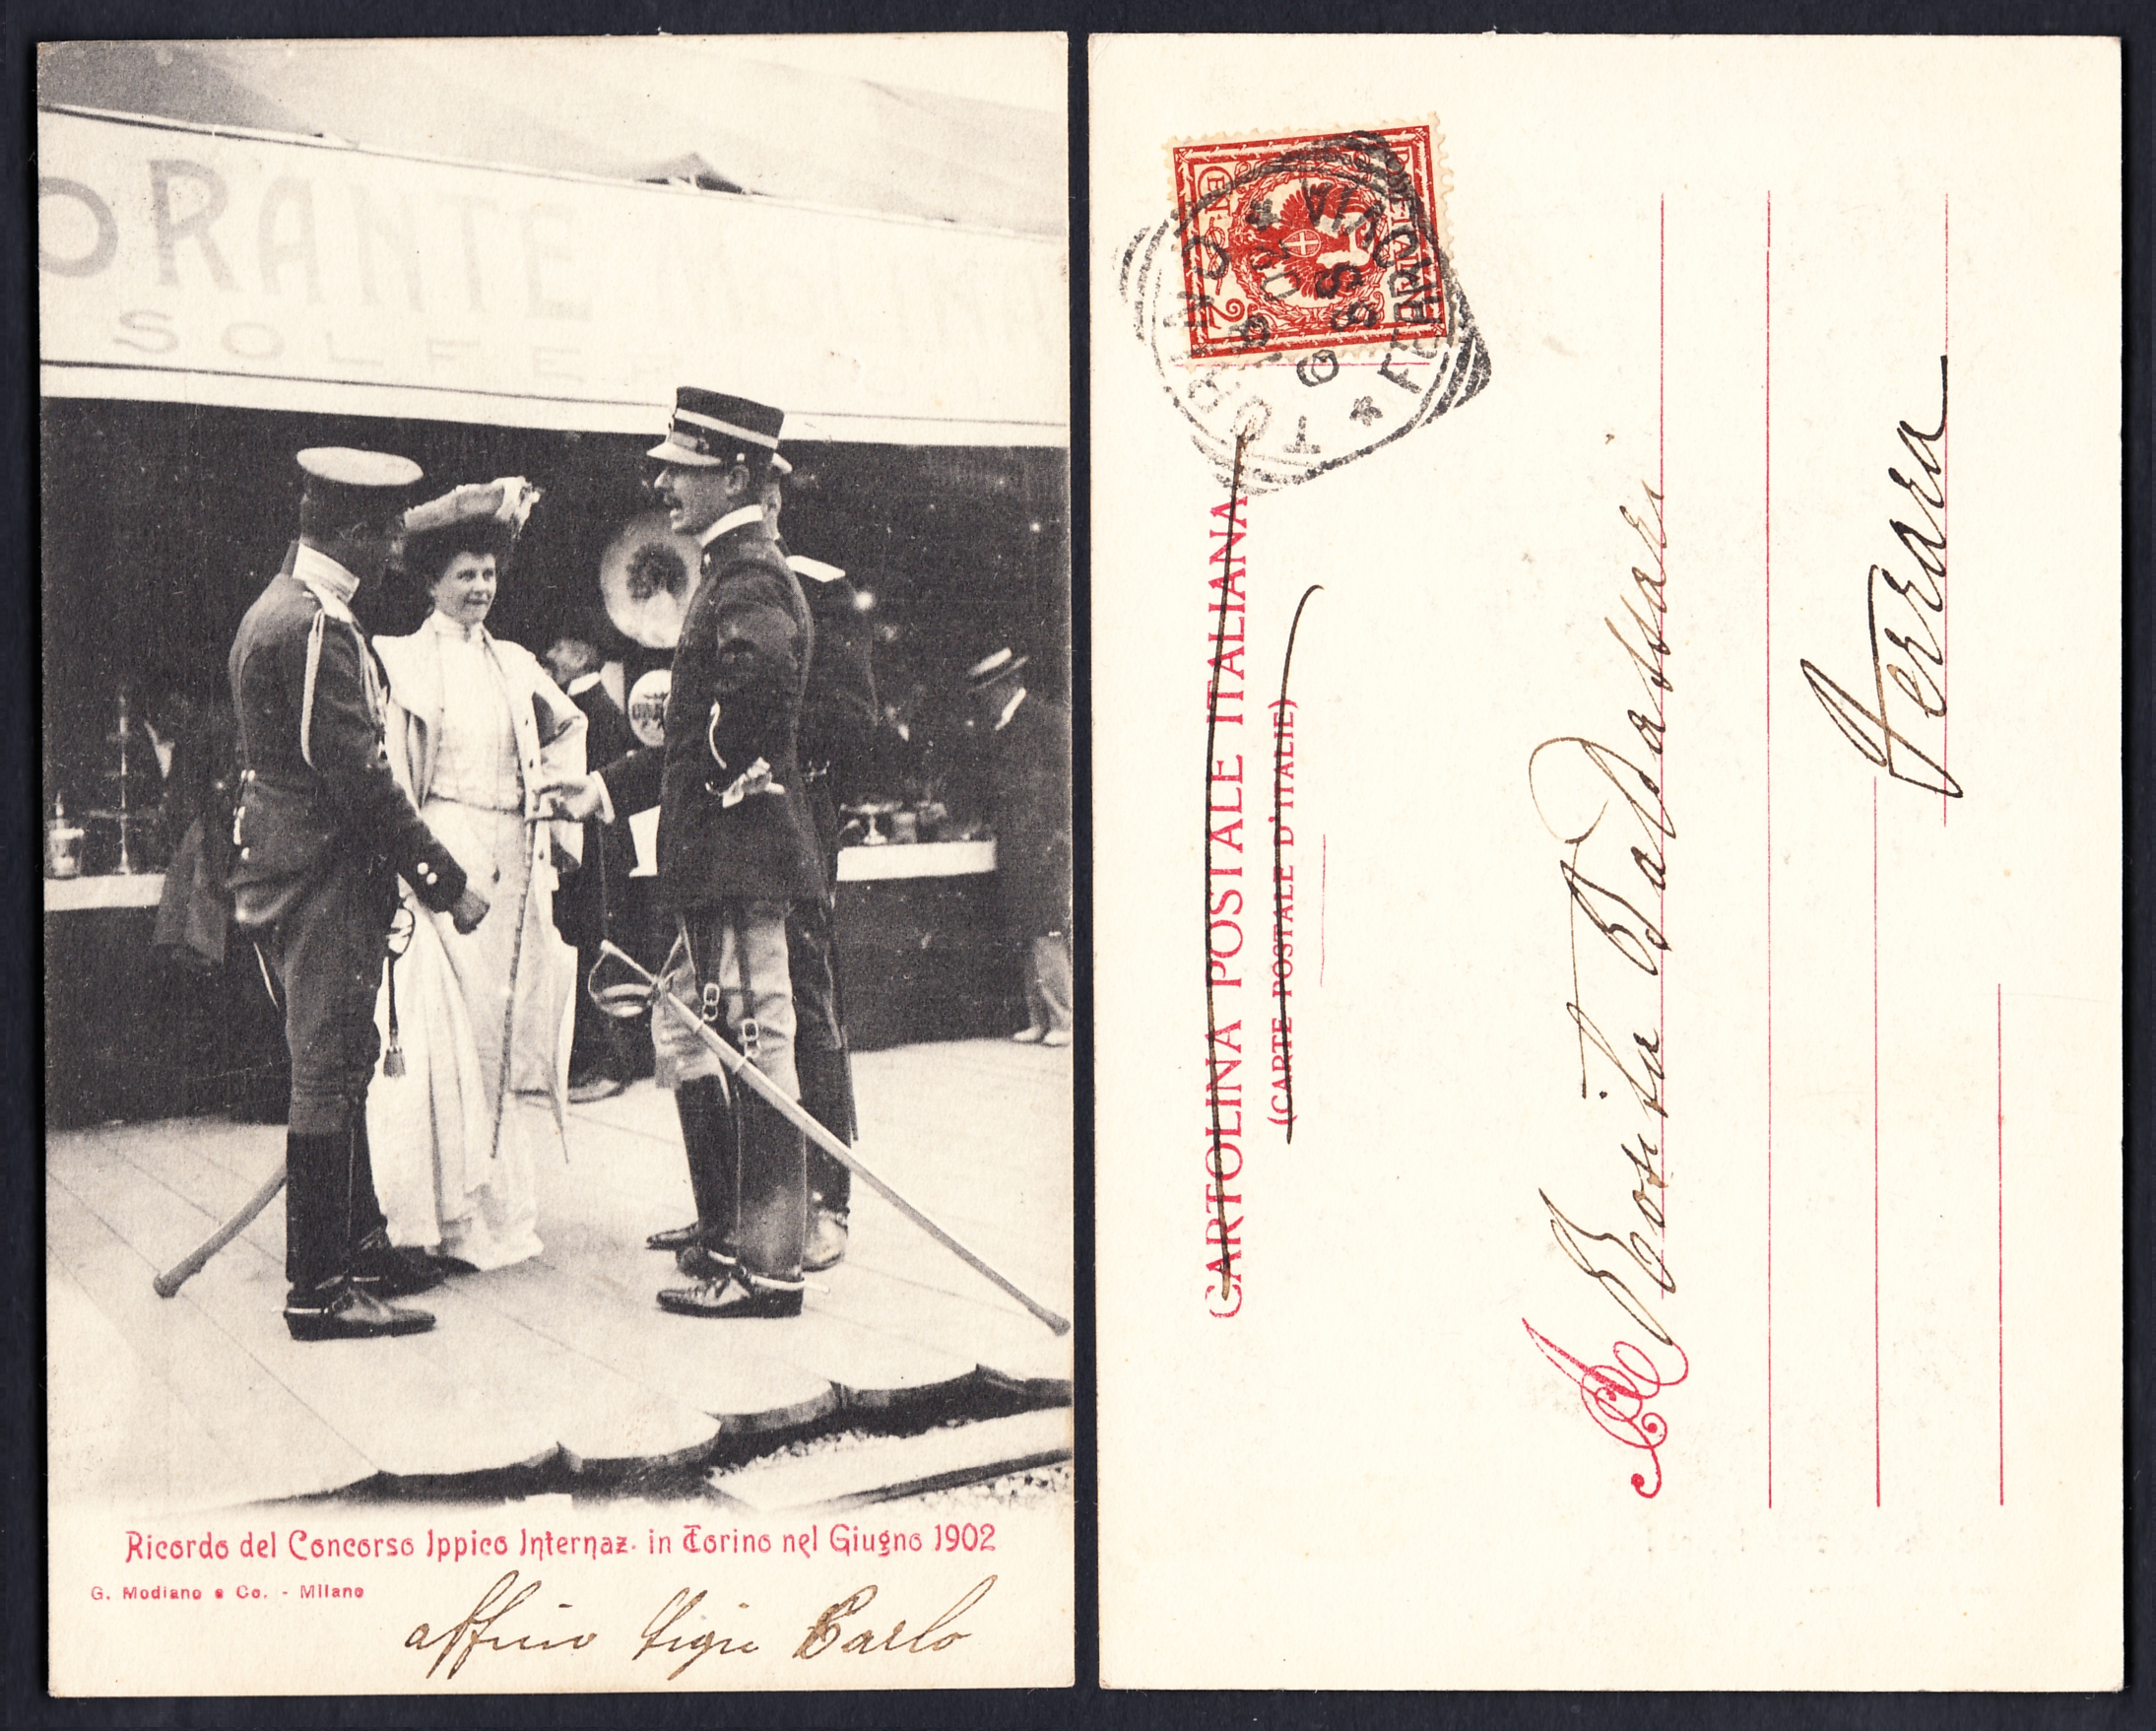 ORANTE
SOLFE
Ricordo del Concorso Ippico Internaz. in Torino nel Giugno 1902
G. Modiano e Co. - Milano
Carlo
POSTE ITALIANE
CENT. 2
TORINO * FERROVIA *
CARTOLINA POSTALE ITALIANA
(CARTE POSTALE D'ITALIE)
A Rosita Baldassari
Ferrara